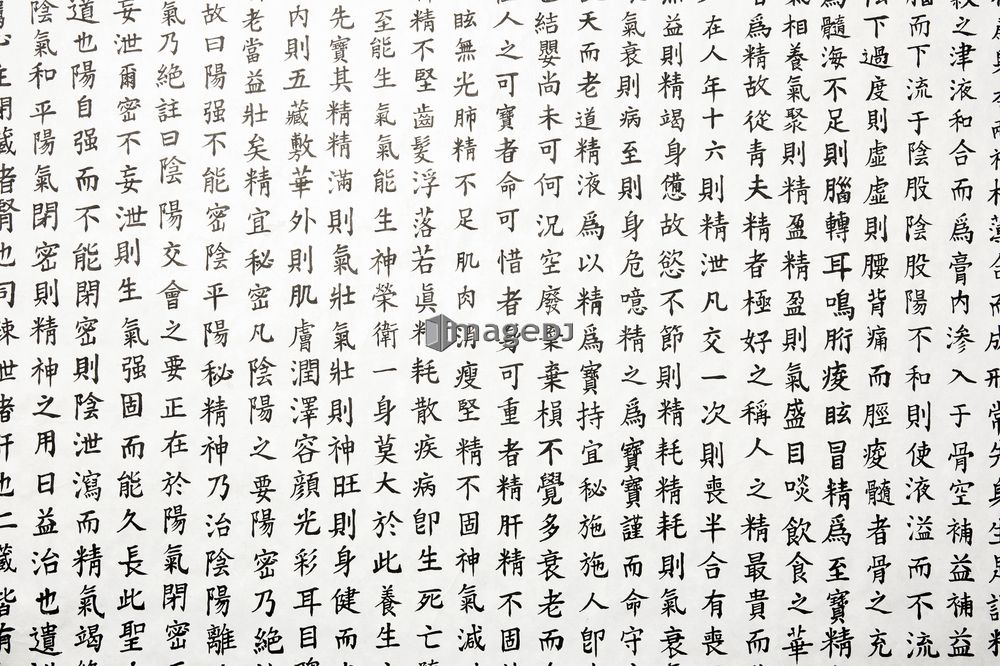 而神相薄合而成形常先身生是謂精
穀之津液和合而爲膏內渗入于骨空補益補益
腦而下流于陰股陰股陽不和則使液溢而不流
陰下過度則虛虛則腰背痛而脛痠髓者骨之充
爲髓海不足則腦轉耳鳴胻痠眩冒精爲至寶精
氣相養氣聚則精盈精盈則氣盛目啖飲食之華
者爲精故從青夫精者極好之稱人之精最貴而
少在人年十六則精泄凡交一次則喪半合有喪
無益則精竭身憊故慾不節則精耗精耗則氣衰
氣衰則病至則身危噫精之爲寶寶謹而命守
天而老道精液爲以精爲寶持宜秘施施人卽
結嬰尚未可何況空廢棄棄損不覺多衰老而
人之可寶者命可惜者身可重者精肝精不固
眩無光肺精不足肌肉消瘦堅精不固神氣減
精不堅齒髮浮落若眞精耗散疾病卽生死亡
至能生氣氣能生神榮衛一身莫大於此養生
先寶其精精滿則氣壯氣壯則神旺則身健而
內則五藏敷華外則肌膚潤澤容顔光彩耳目聰
老當益壯矣精宜秘密凡陰陽之要陽密乃絶
故曰陽强不能密陰平陽秘精神乃治陰陽離
氣乃絶註曰陰陽交會之要正在於陽氣閉密
妄泄爾密不妄泄則生氣强固而能久長此聖
道也陽自强而不能閉密則陰泄瀉而精氣竭
陰氣和平陽氣閉密則精神之用日益治也遺
主閉藏者腎也司疎泄者肝也二藏皆有
imageDJ